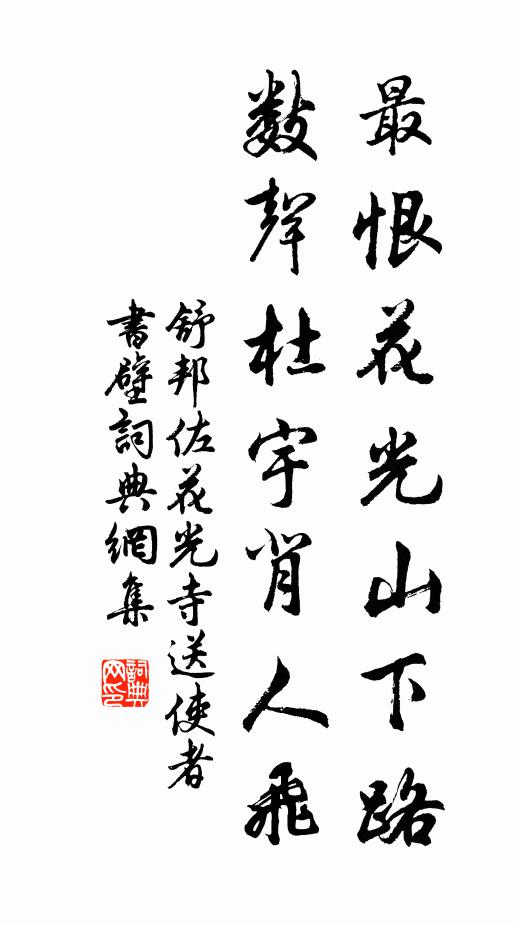 最恨花光山下路
数聲杜宇背人飛
舒邦佐花光寺送使者
書壁詞典網集
詞典网印